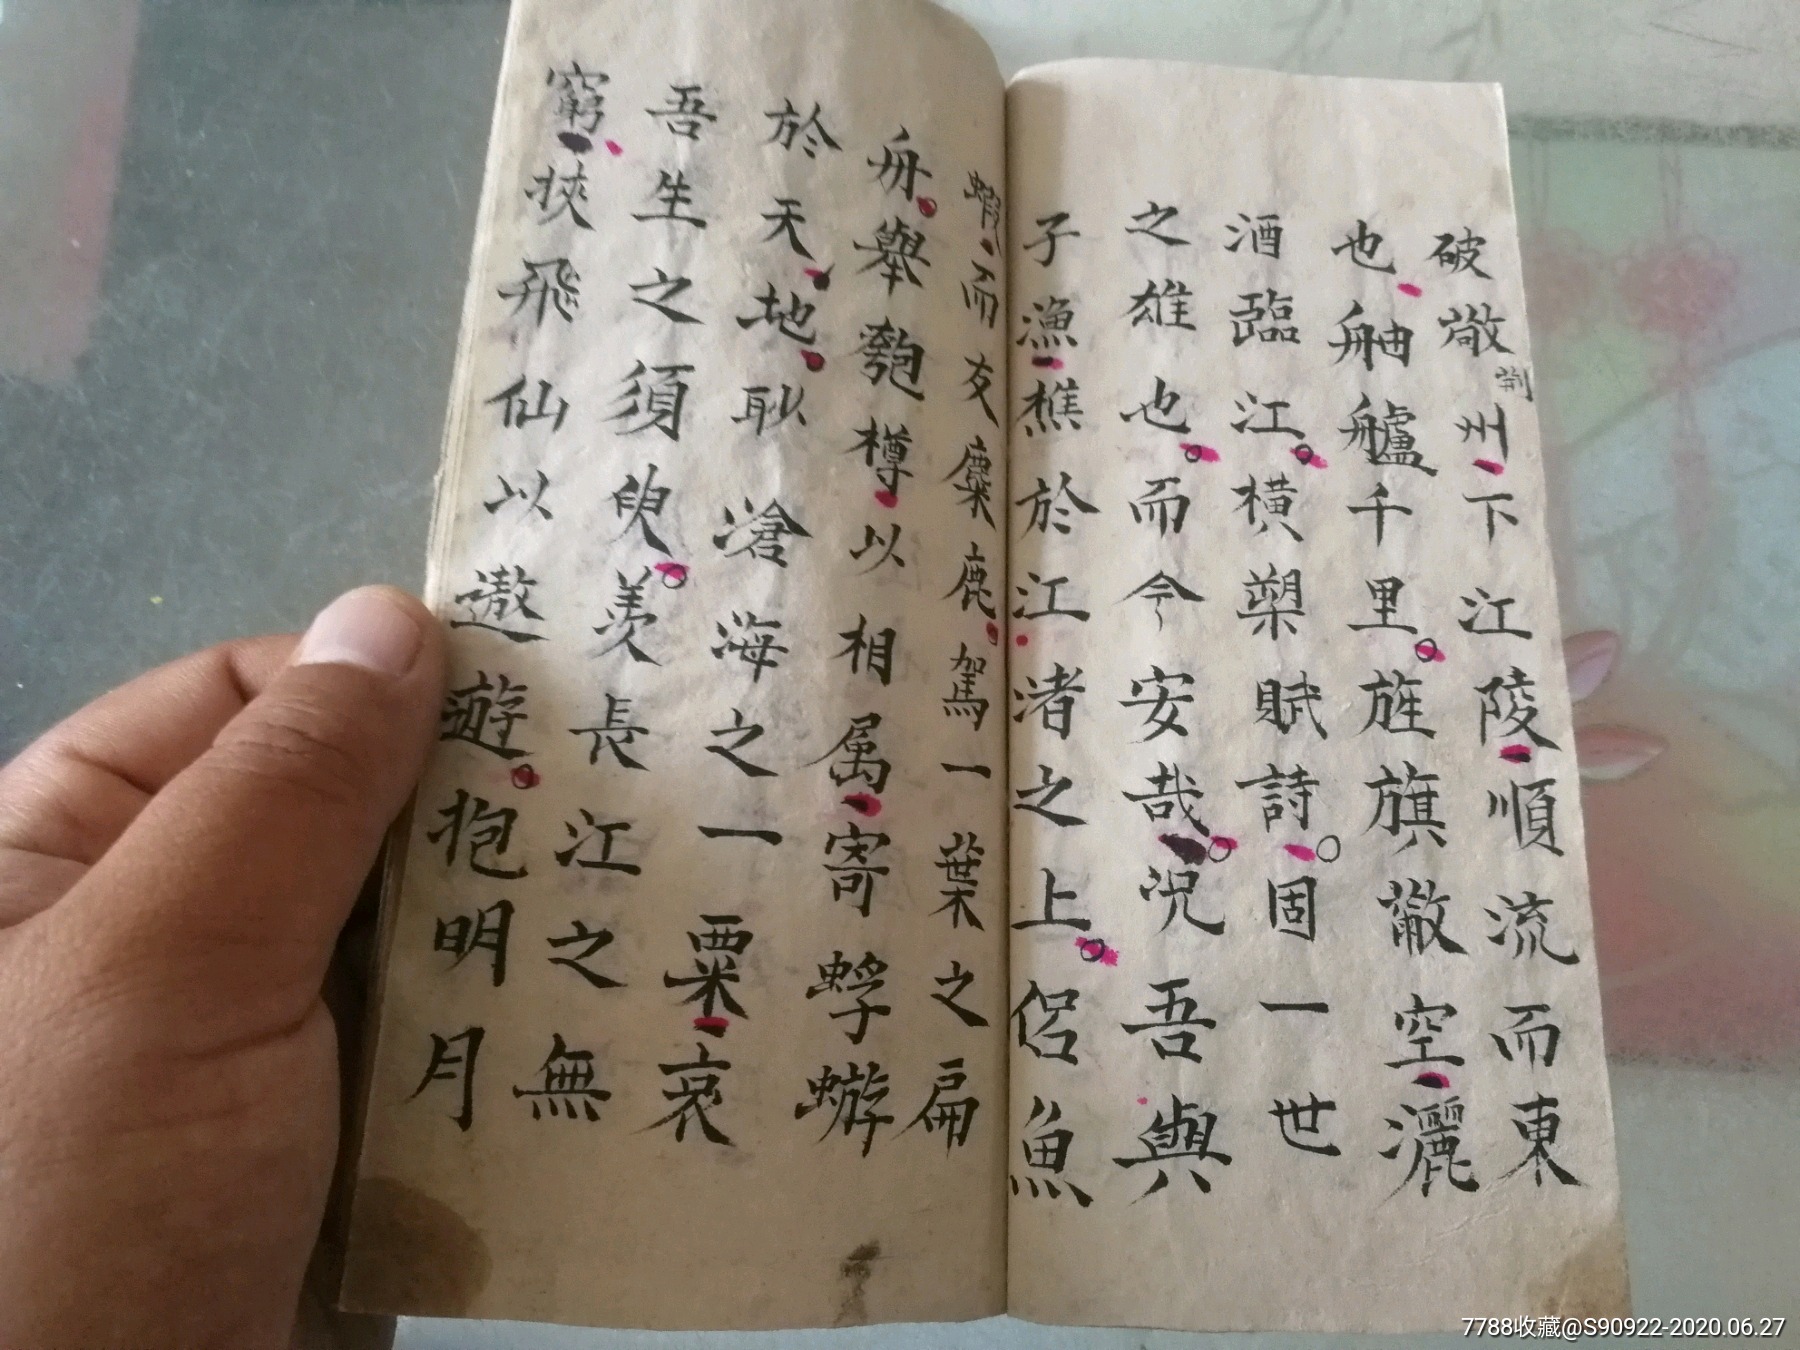 破敞荊州下江陵順流而東
也舳艫千里旌旗蔽空灑
酒臨江橫槊賦詩固一世
之雄也而今安哉況吾與
子漁樵於江渚之上侶魚
蝦而友麋鹿駕一葉之扁
舟舉匏樽以相属寄蜉蝣
於天地眇滄海之一粟哀
吾生之須臾羨長江之無
窮挾飛仙以遨遊抱明月
7788收藏@S90922-2020.06.27